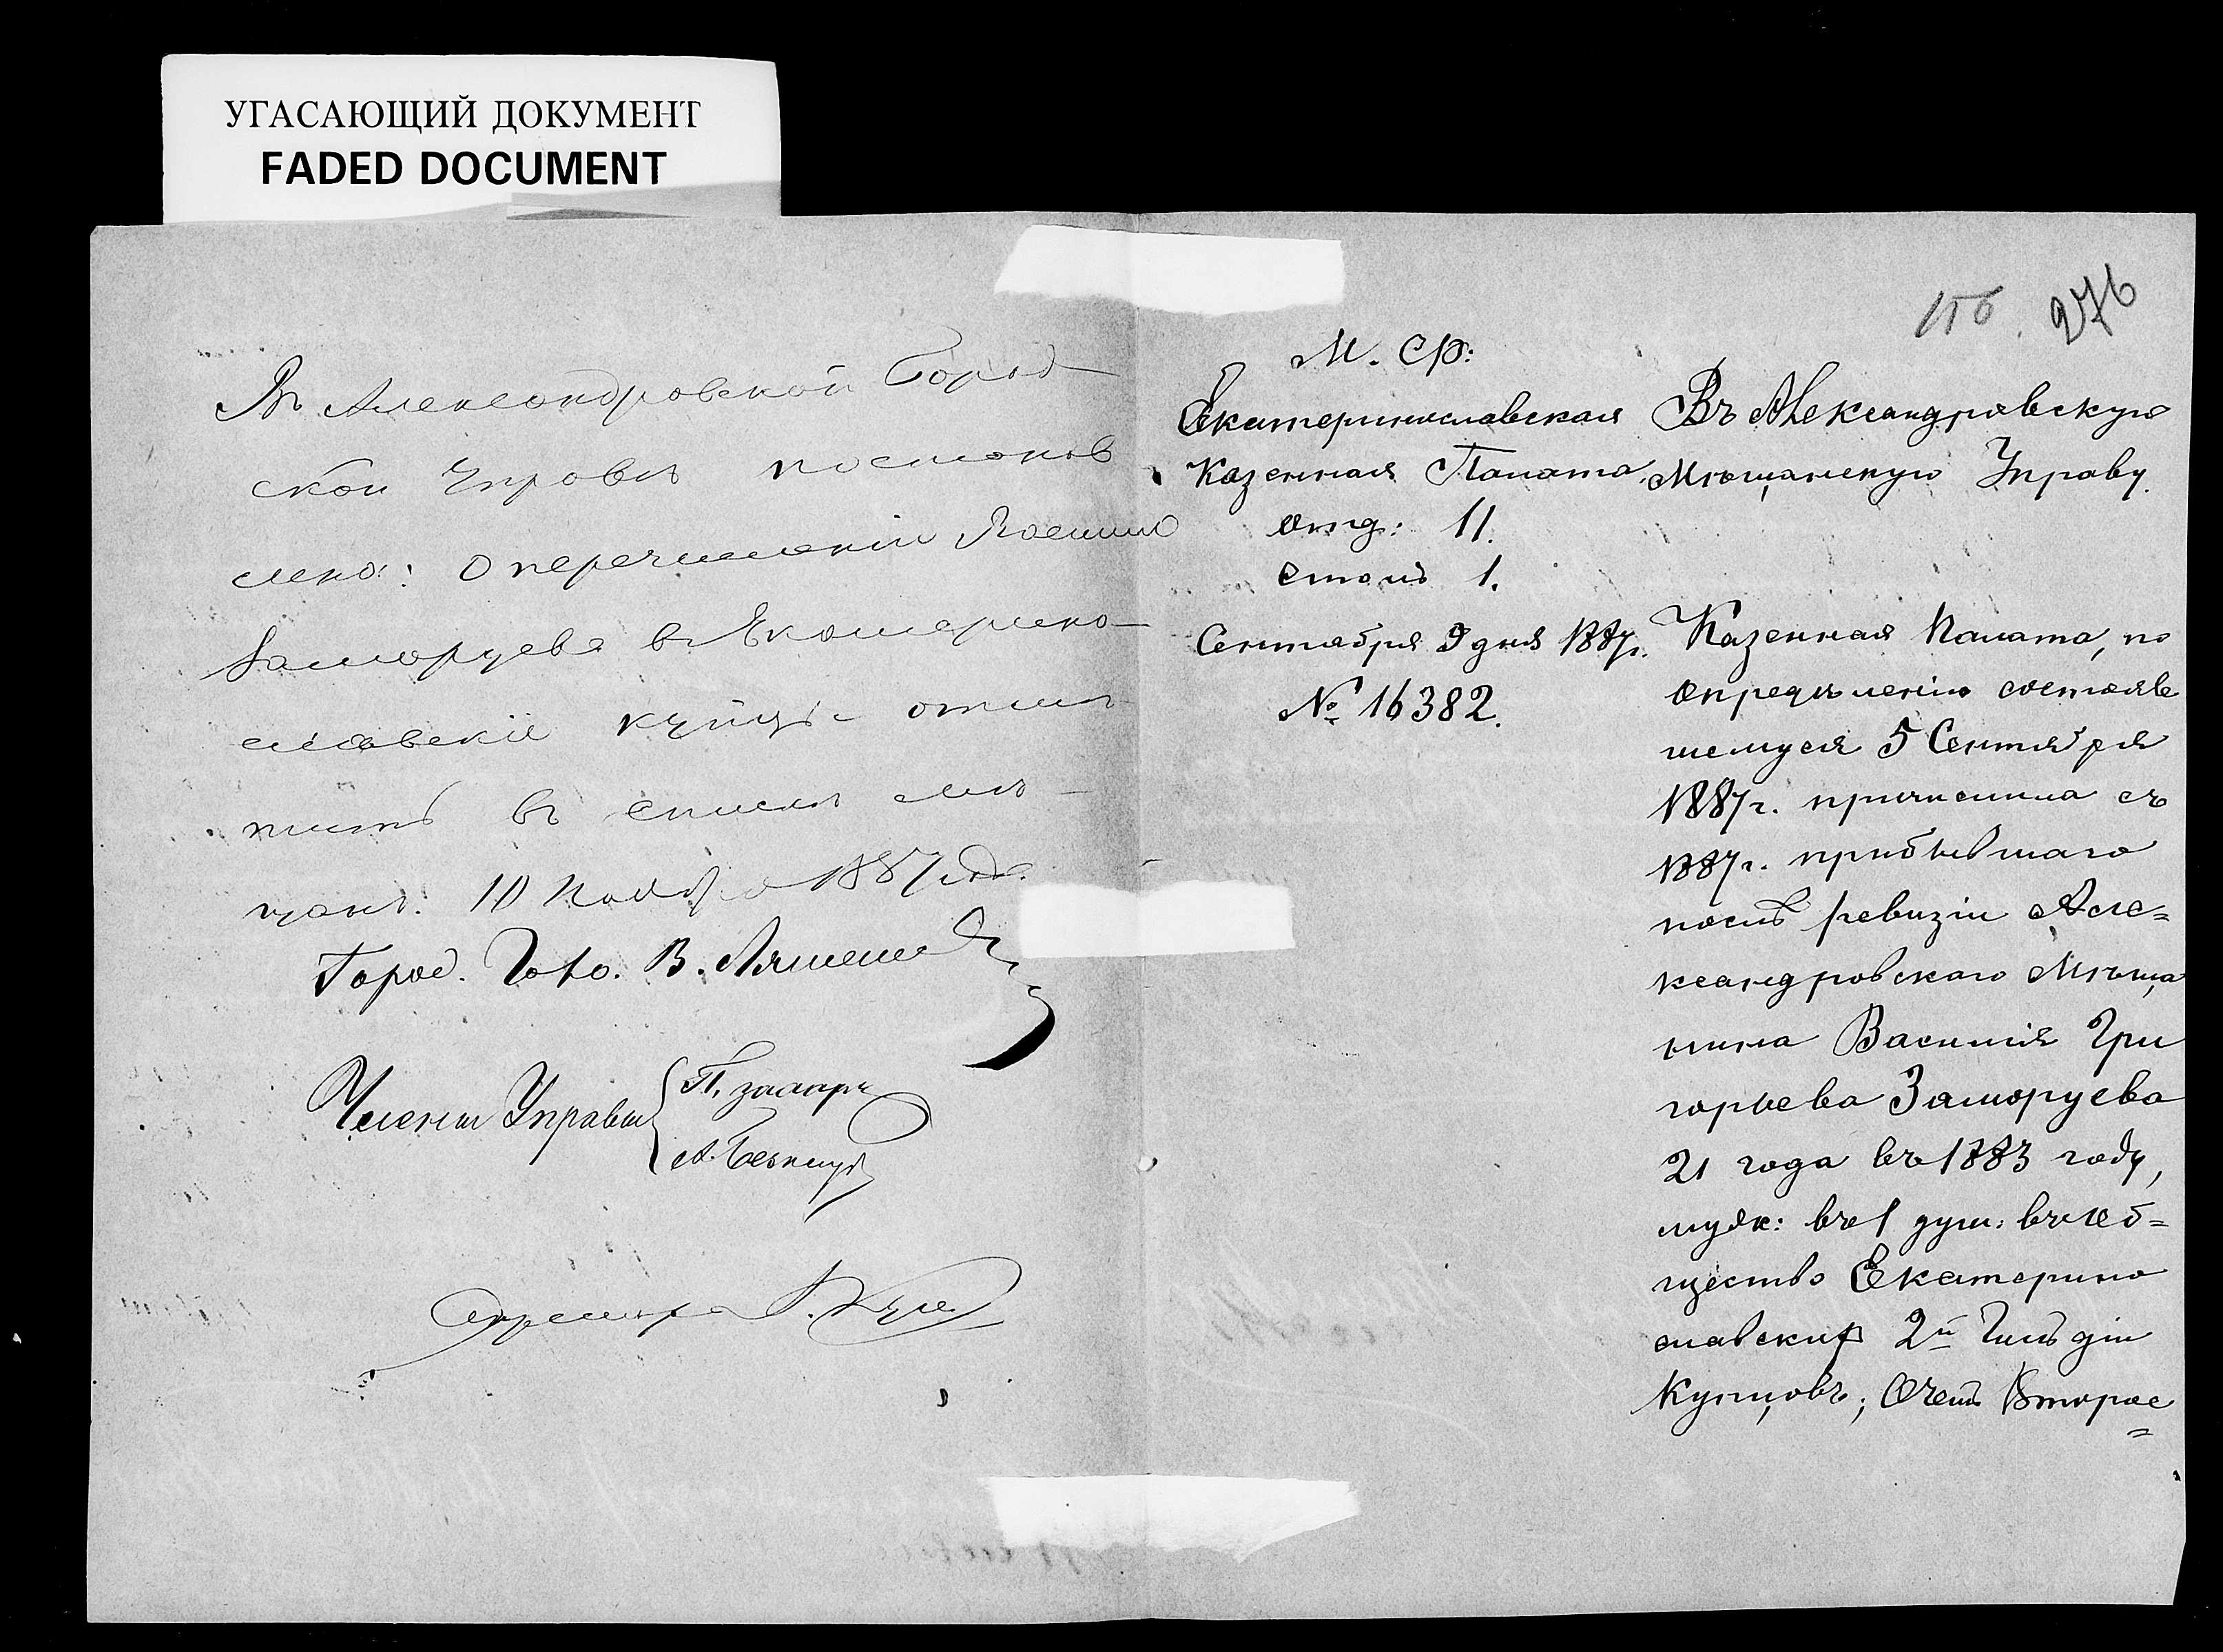 УГАСАЮЩИЙ ДОКУМЕНТ
FADED DOCUMENT
Въ Александровской Город
ской Управѣ постанов
лено: О перечисленіи Василія
Заморуева въ Екатерино-
славскіе купцы отмѣ-
тить въ спискѣ мѣ-
щанъ. 10 Ноября 1887 года.
Город. Голо. В. Ляшенко
Члены Управы
Секретарь
276
М. Ф:
Екатеринославская
Казенная Палата.
Отд: II.
Столъ 1.
Сентября 9 дня 1887г.
№ 16382.
Въ Александровскую
Мѣщанскую Управу.
Казенная Палата, по
опредѣленію состояв
шемуся 5 Сентября
1887г. причислила съ
1887г. прибывшаго
послѣ ревизіи Але=
ксандровскаго Мѣща
нина Василія Гри
горьева Заморуева
21 года въ 1883 году,
муж: въ 1 душ: въ об=
щество Екатерино
славскихъ 2й Гильдіи
Купцовъ; О чемъ Второе
=